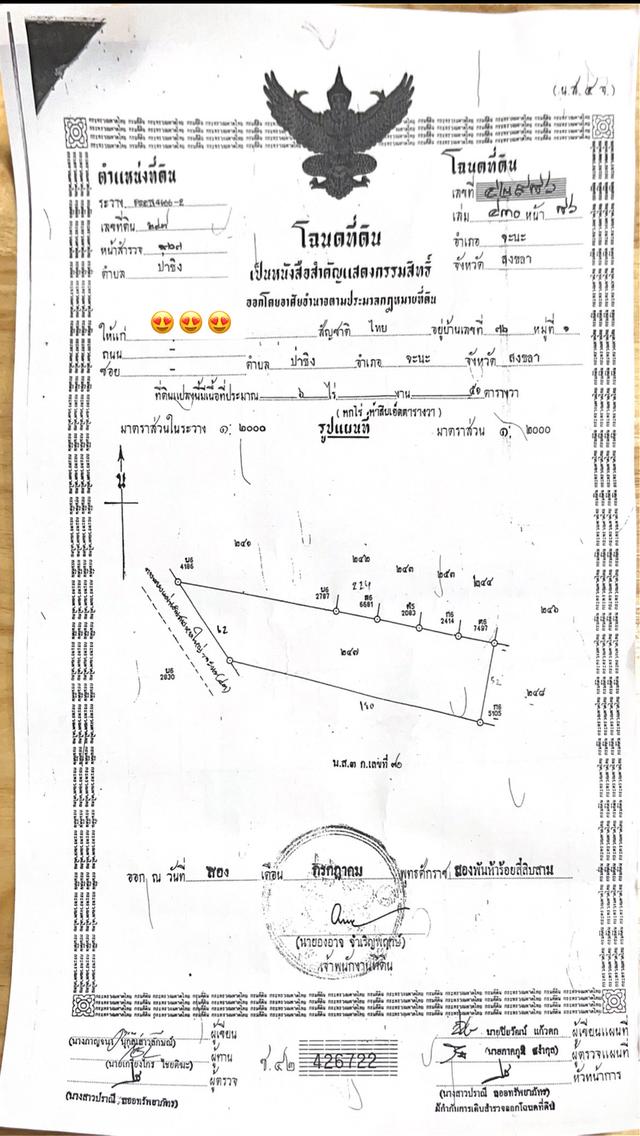 (น.ส.๔ จ.)
ตำแหน่งที่ดิน
ระวาง
เลขที่ดิน ๒๔๗
หน้าสำรวจ
ตำบล ป่าชิง
โฉนดที่ดิน
เลขที่
เล่ม ๔๓๐ หน้า ๗๖
อำเภอ จะนะ
จังหวัด สงขลา
โฉนดที่ดิน
เป็นหนังสือสำคัญแสดงกรรมสิทธิ์
ออกโดยอาศัยอำนาจตามประมวลกฎหมายที่ดิน
ให้แก่ 😍 😍 😍 สัญชาติ ไทย อยู่บ้านเลขที่ ๗๒ หมู่ที่ ๑
ถนน -
ซอย - ตำบล ป่าชิง อำเภอ จะนะ จังหวัด สงขลา
ที่ดินแปลงนี้มีเนื้อที่ประมาณ ๖ ไร่ - งาน ๕๑ ตารางวา
(หกไร่ ห้าสิบเอ็ดตารางวา)
มาตราส่วนในระวาง ๑: ๒๐๐๐ รูปแผนที่ มาตราส่วน ๑: ๒๐๐๐
น
๒๔๑
๒๔๒
๒๔๓
๒๕๓
๒๔๔
๒๔๖
บ6
4186
บ6
2787
224
ส6
6681
2083
2414
7497
62
๒๔๗
52
๒๔๘
บ6
2830
180
5105
น.ส.๓ ก.เลขที่ ๗๐
ออก ณ วันที่ สอง เดือน กรกฎาคม พุทธศักราช สองพันห้าร้อยสี่สิบสาม
(นายองอาจ จำเริญพฤกษ์)
เจ้าพนักงานที่ดิน
ผู้เขียน
ผู้ทาน
(นายเกรียงไกร ไชยติณะ)
ผู้ตรวจ
(นางสาวปราณี ลออทรัพยาภัทร)
ช.๔๒ 426722
นายปิยวัฒน์ แก้วคก ผู้เขียนแผนที่
ผู้ตรวจแผนที่
หัวหน้าการ
(นางสาวปราณี ลออทรัพยาภัทร)
ผู้กำกับการเดินสำรวจออกโฉนดที่ดิน